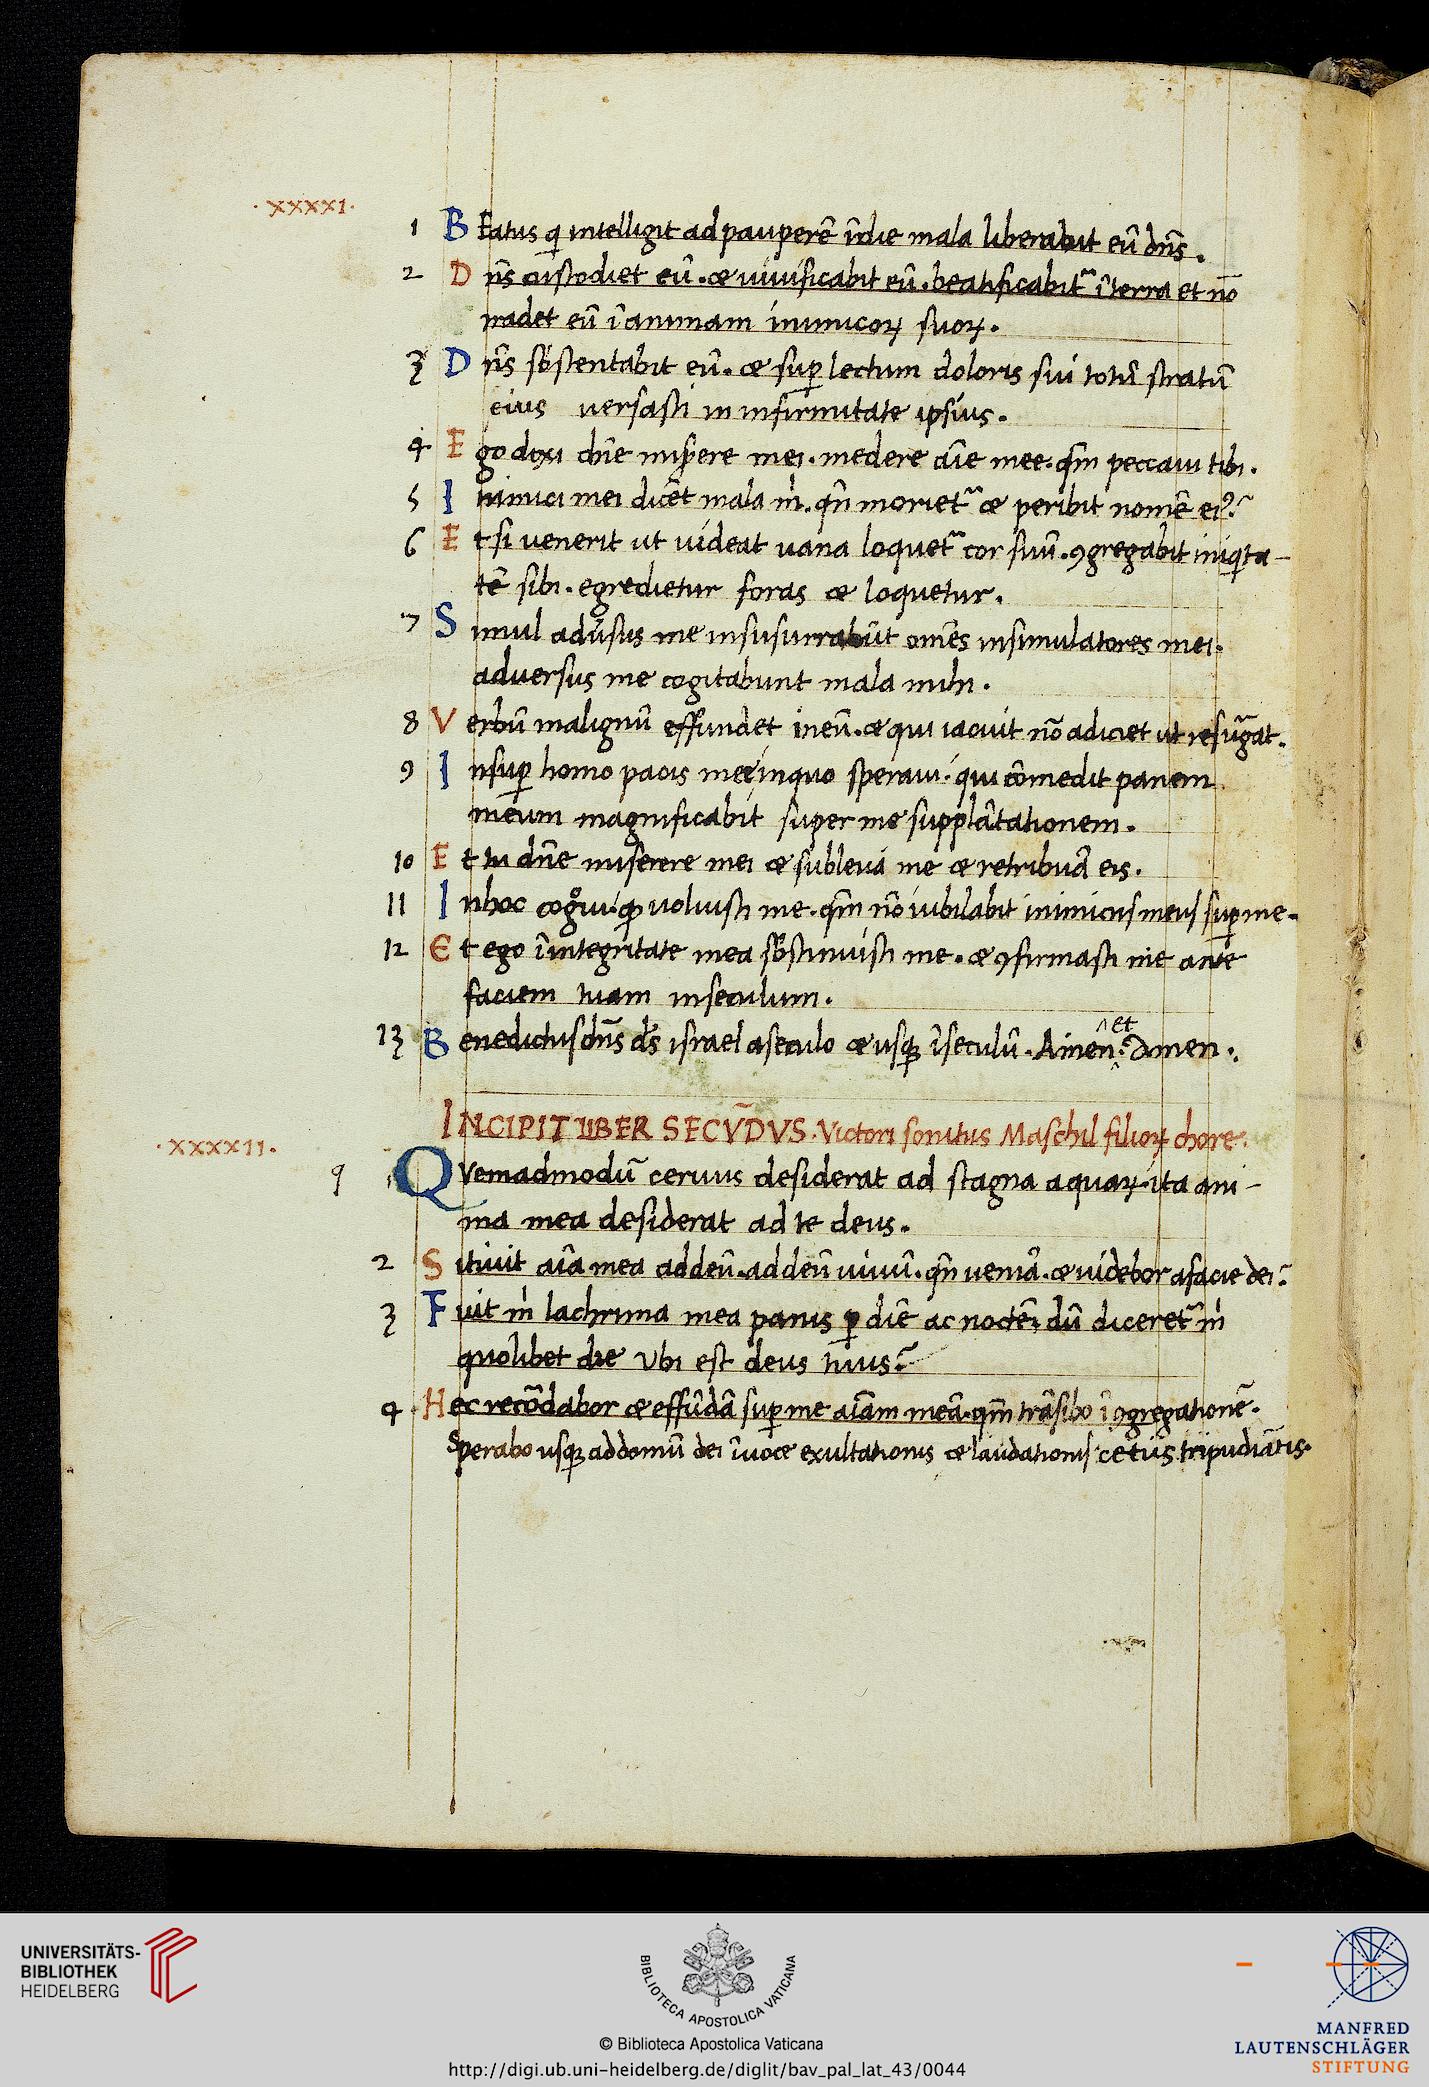 ·XXXXI·
1 BEatus q̄ intelligit ad pauperē īdie mala liberabit eū dn̄s.
2 Dn̄s custodiet eū. & uiuificabit eū. beatificabit᷑ ī terra et nō
tradet eū ī animam inimicoꝝ suoꝝ.
3 Dn̄s sƀstentabit eū. & suꝑ lectum doloris sui totū stratū
eius versasti in infirmitate ipsius.
4 Ego dixi dn̄e misere mei. medere aīe mee. qm̄ peccaui tibi.
5 Inimici mei dicēt mala m̍. qn̄ moriet᷑ & peribit nomē eiꝰ?
6 Et si venerit ut uideat uana loquet᷑ cor suū. ꝯgregabit iniqita-
tē sibi. egredietur foras & loquetur.
7 Simul adūsus me insusurrabūt omēs insimulatores mei.
adversus me cogitabunt mala mihi.
8 Verbū malignū effundet in eū. & qui iacuit nō adiciet ut resurgat.
9 Insuꝑ homo pacis mee inquo speraui. qui cōmedit panem
meum magnificabit super me supplātationem.
10 Et tu dn̄e miserere mei & subleva me & retribuā eis.
11 Inhoc cognoui. ꝙ voluisti me. qm̄ nō iubilabit inimicus meus suꝑ me.
12 Et ego ī integritate mea sƀstinuisti me. & ꝯfirmasti me ante
faciem tuam inseculum.
13 Benedictus dn̄s ds̄ israel aseculo & usqꝫ ī seculū. Amen. et amen.
INCIPIT LIBER SECV̄DVS. Victori sonitus Maschil filioꝝ chore.
·XXXXII·
1 QVemadmodū ceruus desiderat ad stagna aquaꝝ. ita ani-
ma mea desiderat ad te deus.
2 Sitiuit aīa mea ad deū. ad deū uiuū. qn̄ ueniā. & uidebor afacie dei?
3 Fuit m̍ lachrima mea panis ꝑ diē ac noctē. dū diceret᷑ m̍
quolibet die Vbi est deus tuus?
4 Hec recōdabor & effūdā suꝑ me aīam meā. qm̄ trāsibo ī ꝯgregationē.
sperabo usqꝫ ad domū dei ī uoce exultationis & laudationis cetus tripudiātis.
UNIVERSITÄTS-
BIBLIOTHEK
HEIDELBERG
BIBLIOTECA APOSTOLICA VATICANA
© Biblioteca Apostolica Vaticana
http://digi.ub.uni-heidelberg.de/diglit/bav_pal_lat_43/0044
MANFRED
LAUTENSCHLÄGER
STIFTUNG